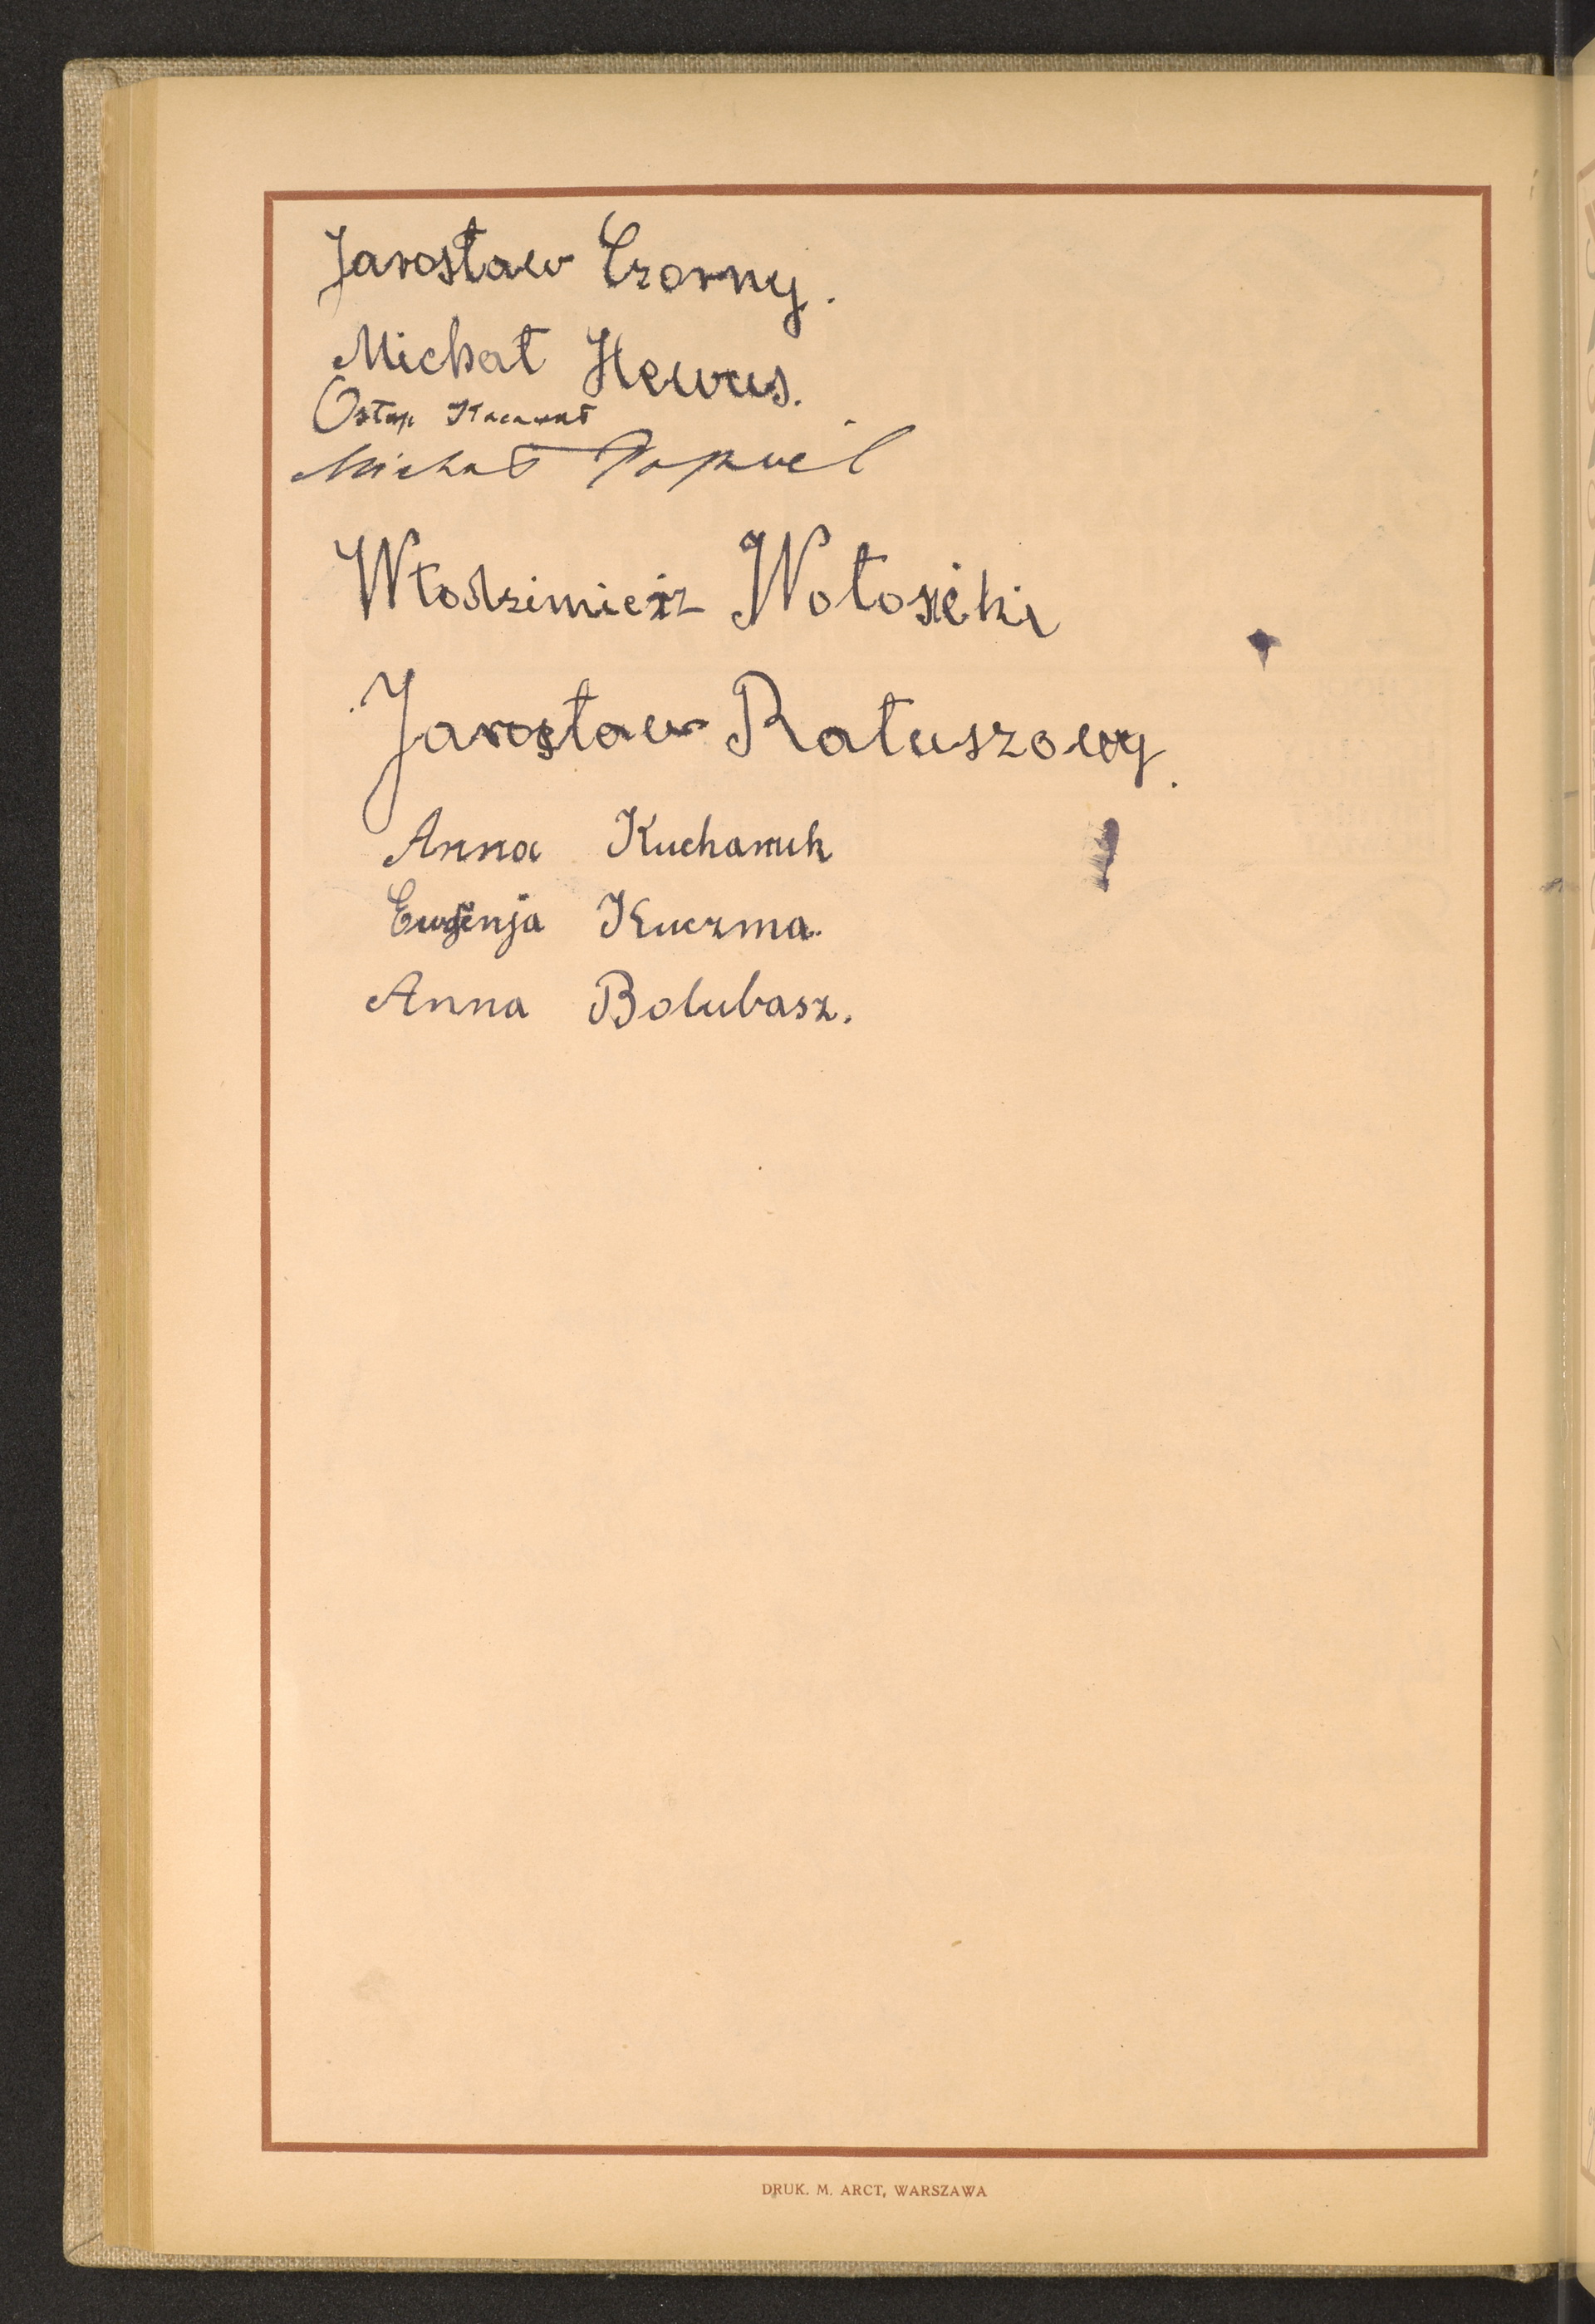 Jarosław Czorny.
Michał Hewus.
Ostap
Michał Popiel
Włodzimierz Wołosiecki
Jarosław Ratuszowy.
Anna Kucharuk
Eugienja Kuczma.
Anna Bolubasz.
DRUK. M. ARCT, WARSZAWA